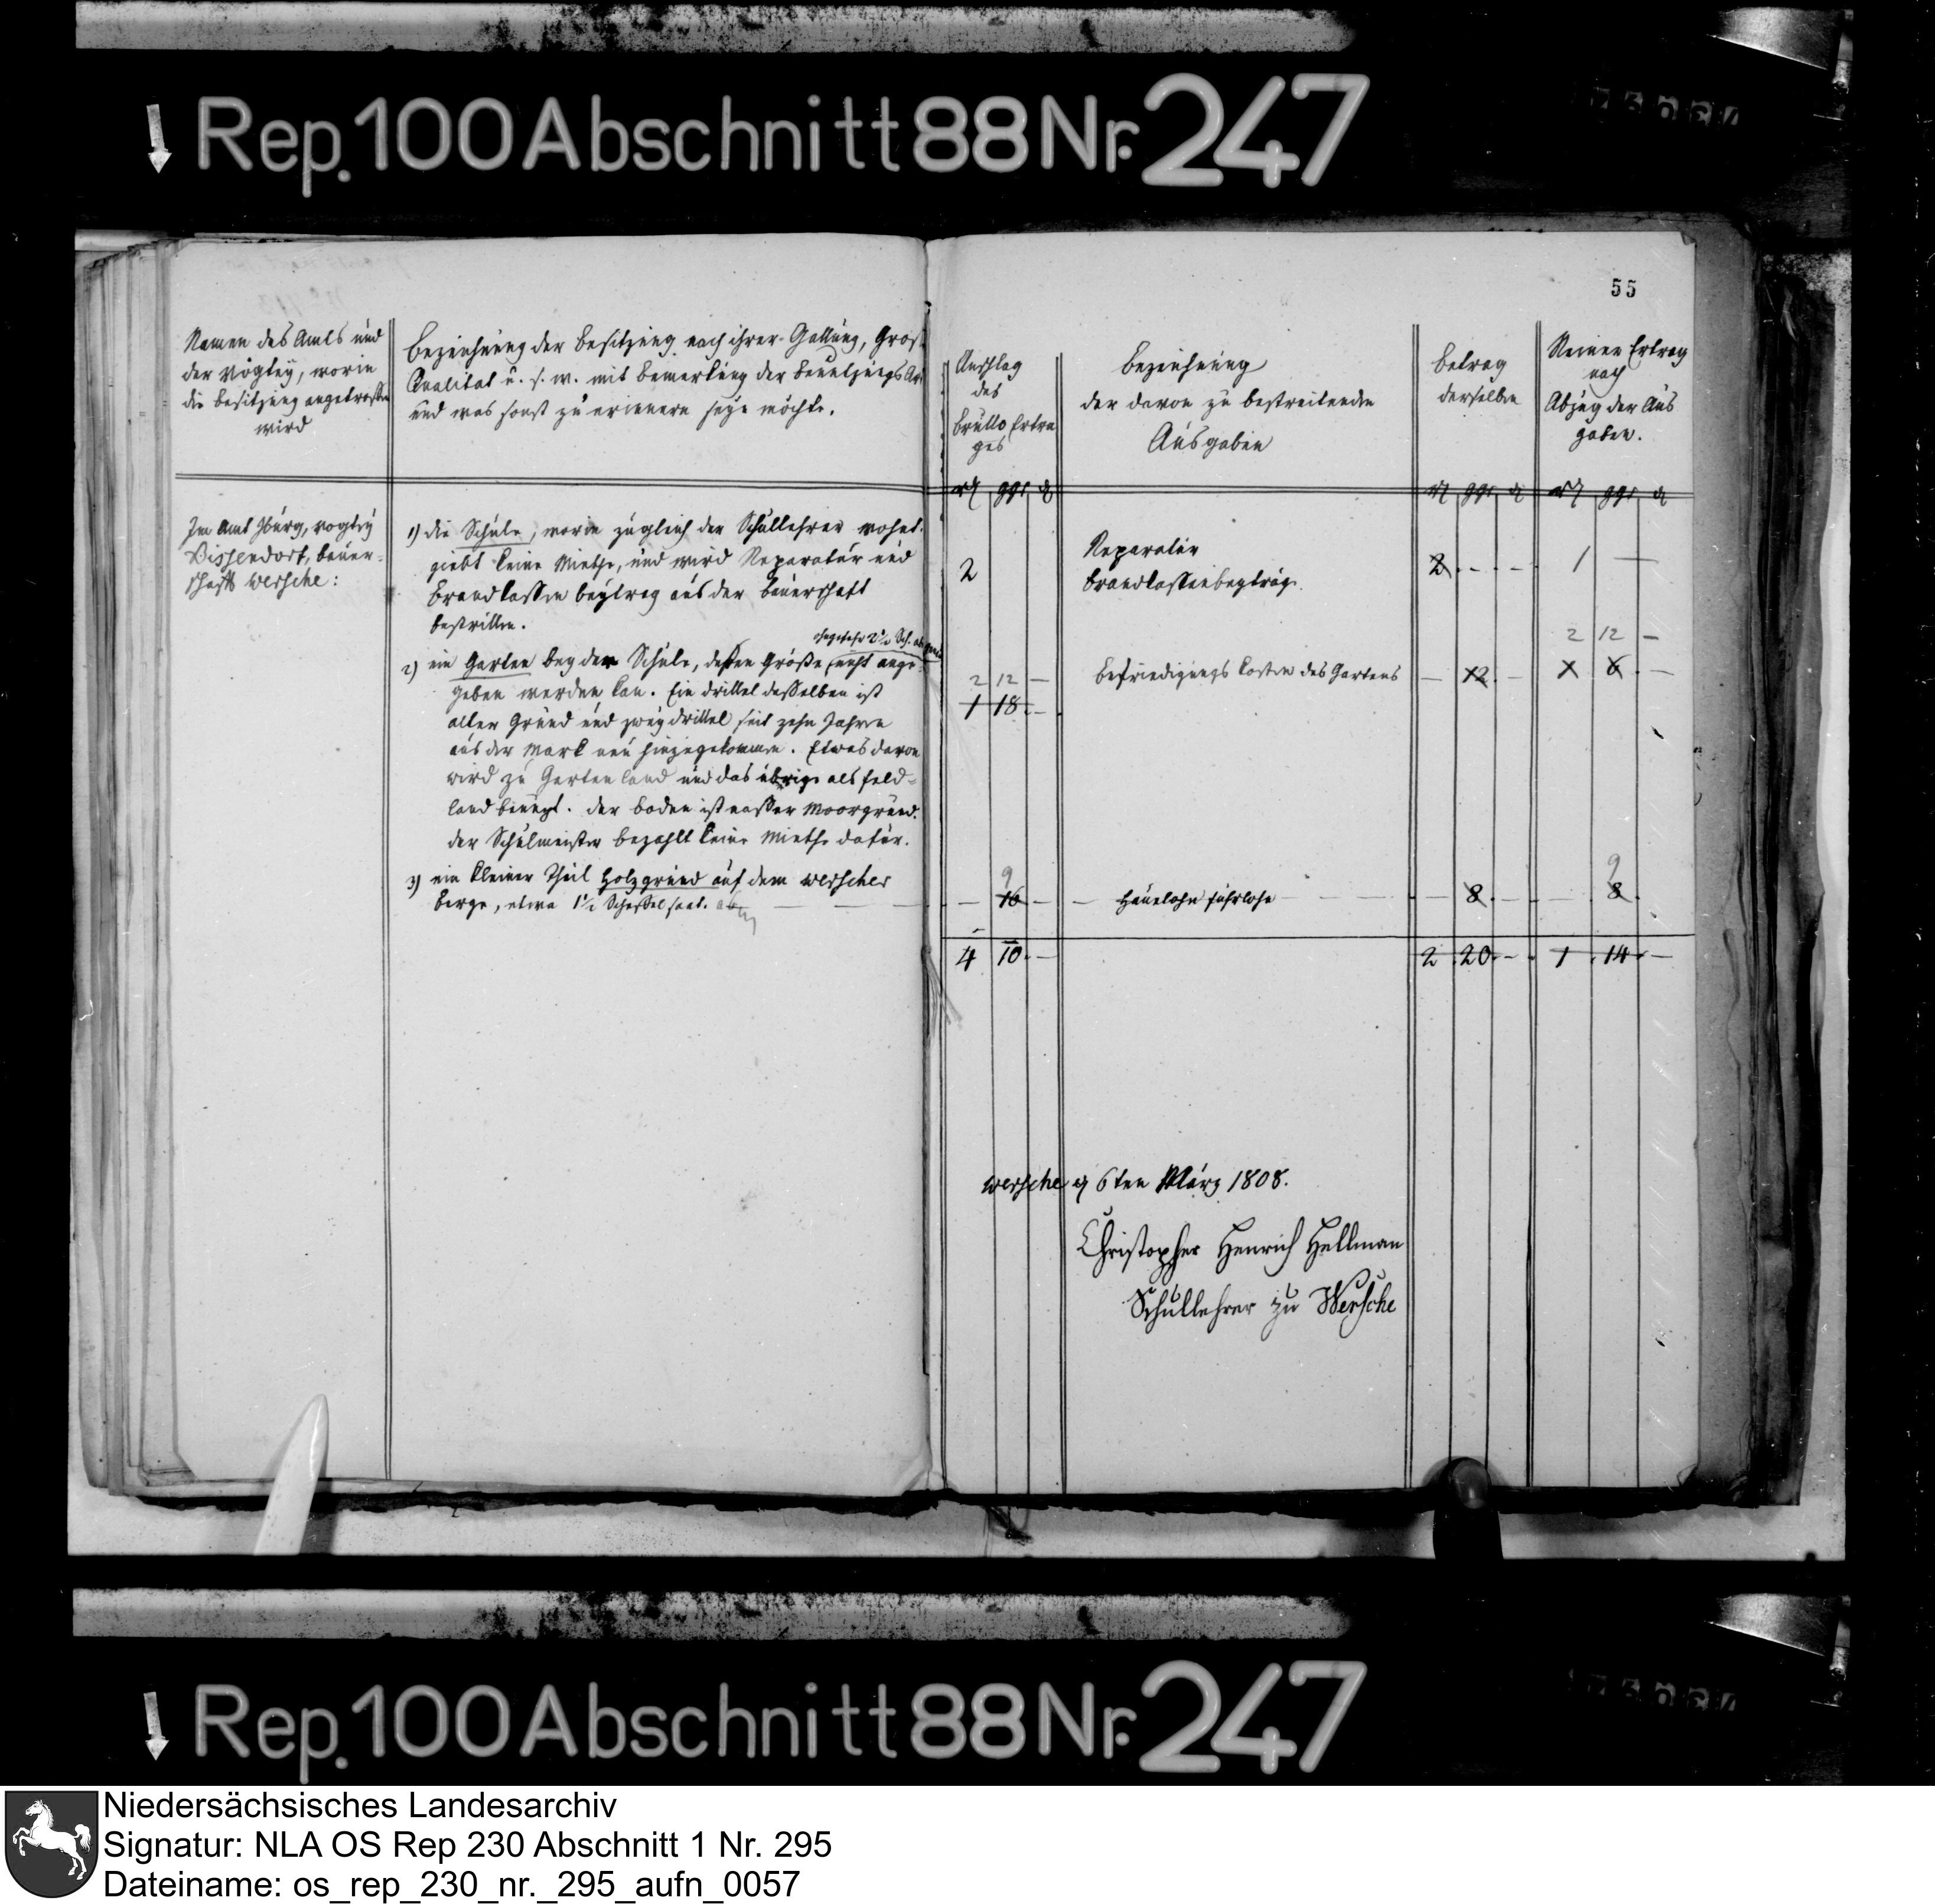 Rep. 100 Abschnitt 88 Nr. 247
55
Namen des Amts und
der Vögtey, worin
die Besitzung angetroffen
wird
Bezeichnung der Besitzung nach ihrer Gattung, Größe
Qualitat u. s. w. mit Bemerkung der Benutzungs Art
und was sonst zu erinnern seyn möchte.
Anschlag
des
Brutto Ertra
ges
Bezeichnung
der davon zu bestreitenden
Ausgaben
Betrag
derselben
Reiner Ertrag
nach
Abzug der Aus
gaben.
rt ggr d
rt ggr d
rt ggr d
Im Amt Iburg, Vogtey
Dissendorf, Bauer-
schaft Wersche:
1) die Schule, worin zugleich der Schullehrer wohnt.
giebt keine Miethe, und wird Reparatur und
Brandkassen beytrag aus der Bauerschaft
bestritten.
2
Reparatur
Brandkassenbeytrag.
2 - -
1 —
ohngefehr 2½ Sch.
2) ein Garten bey der Schule, dessen Größe nicht ange-
geben werden kan. Ein drittel desselben ist
alter Grund und zwey drittel seit zehn Jahren
aus der Mark neu hinzugekommen. Etwas davon
wird zu Gartenland und das übrige als Feld-
land benuzt. Der Boden ist nasser Moorgrund.
der Schulmeister bezahlt keine Miethe dafür.
2 12 —
1 18 -
Befriedigungs Kosten des Gartens
— 12 -
2 12 —
1 6 —
3) ein kleiner Theil Holzgrund auf dem Werscher
Berge, etwa 1½ Scheffel saat.
9
— 16 —
Hauelohn Fuhrlohn
— 8 -
9
8
4 10 —
2 20 -
1 14 —
Wersche d 6ten März 1808.
Christopher Henrich Hellman
Schullehrer zu Wersche
Rep. 100 Abschnitt 88 Nr. 247
Niedersächsisches Landesarchiv
Signatur: NLA OS Rep 230 Abschnitt 1 Nr. 295
Dateiname: os_rep_230_nr._295_aufn_0057